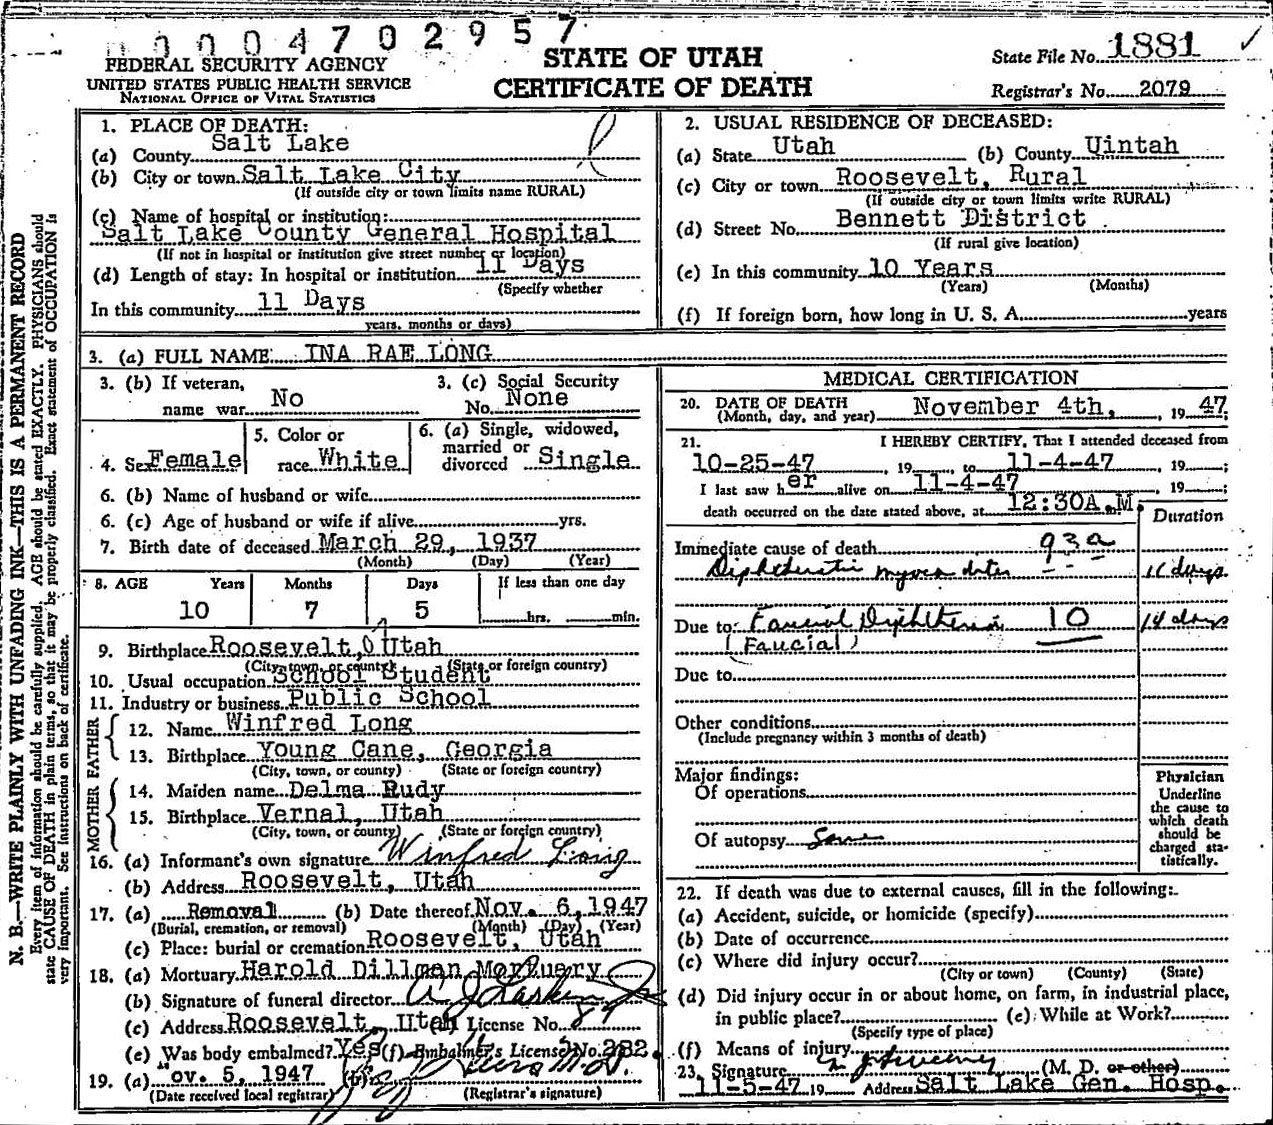 0004702957
FEDERAL SECURITY AGENCY
UNITED STATES PUBLIC HEALTH SERVICE
NATIONAL OFFICE OF VITAL STATISTICS
STATE OF UTAH
CERTIFICATE OF DEATH
State File No. 1881
Registrar's No. 2079
N. B.—WRITE PLAINLY WITH UNFADING INK—THIS IS A PERMANENT RECORD
Every item of information should be carefully supplied. AGE should be stated EXACTLY. PHYSICIANS should
state CAUSE OF DEATH in plain terms, so that it may be properly classified. Exact statement of OCCUPATION is
very important. See instructions on back of certificate.
1. PLACE OF DEATH:
(a) County Salt Lake
(b) City or town Salt Lake City
(If outside city or town limits name RURAL)
(c) Name of hospital or institution:
Salt Lake County General Hospital
(If not in hospital or institution give street number or location)
(d) Length of stay: In hospital or institution 11 Days
(Specify whether
In this community 11 Days
years, months or days)
2. USUAL RESIDENCE OF DECEASED:
(a) State Utah (b) County Uintah
(c) City or town Roosevelt, Rural
(If outside city or town limits write RURAL)
(d) Street No. Bennett District
(If rural give location)
(e) In this community 10 Years
(Years) (Months)
(f) If foreign born, how long in U. S. A. years
3. (a) FULL NAME INA RAE LONG
3. (b) If veteran,
name war No
3. (c) Social Security
No. None
4. Sex Female
5. Color or
race White
6. (a) Single, widowed,
married or
divorced Single
6. (b) Name of husband or wife
6. (c) Age of husband or wife if alive yrs.
7. Birth date of deceased March 29, 1937
(Month) (Day) (Year)
8. AGE Years Months Days If less than one day
10 7 5 hrs. min.
9. Birthplace Roosevelt, Utah
(City, town, or county) (State or foreign country)
10. Usual occupation School Student
11. Industry or business Public School
FATHER
12. Name Winfred Long
13. Birthplace Young Cane, Georgia
(City, town, or county) (State or foreign country)
MOTHER
14. Maiden name Delma Rudy
15. Birthplace Vernal, Utah
(City, town, or county) (State or foreign country)
16. (a) Informant's own signature Winfred Long
(b) Address Roosevelt, Utah
17. (a) Removal (b) Date thereof Nov. 6, 1947
(Burial, cremation, or removal) (Month) (Day) (Year)
(c) Place: burial or cremation Roosevelt, Utah
18. (a) Mortuary Harold Dillman Mortuary
(b) Signature of funeral director
(c) Address Roosevelt, Utah License No. 89
(e) Was body embalmed? Yes (f) Embalmer's License No. 282.
19. (a) ov. 5, 1947 (b)
(Date received local registrar) (Registrar's signature)
MEDICAL CERTIFICATION
20. DATE OF DEATH
(Month, day, and year) November 4th, , 19 47;
21. I HEREBY CERTIFY, That I attended deceased from
10-25-47 , 19 , to 11-4-47 , 19 ;
I last saw her alive on 11-4-47 , 19 ;
death occurred on the date stated above, at 12:30A.M.
Duration
Immediate cause of death 93a
Diphtheritic myocarditis 11 days
Due to: Faucial Diphtheria 10 14 days
(Faucial)
Due to
Other conditions
(Include pregnancy within 3 months of death)
Major findings:
Of operations
Of autopsy Same
Physician
Underline
the cause to
which death
should be
charged sta-
tistically.
22. If death was due to external causes, fill in the following:
(a) Accident, suicide, or homicide (specify)
(b) Date of occurrence
(c) Where did injury occur?
(City or town) (County) (State)
(d) Did injury occur in or about home, on farm, in industrial place,
in public place? (e) While at Work?
(Specify type of place)
(f) Means of injury
23. Signature (M. D. or other)
11-5-47 19 Address Salt Lake Gen. Hosp.